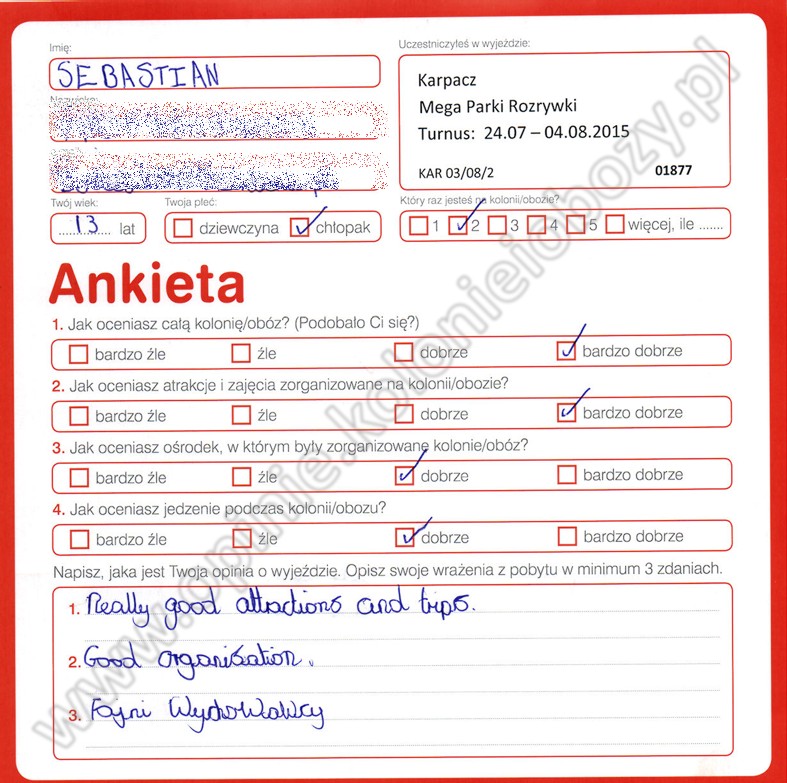 Imię:
SEBASTIAN
Nazwisko:
Twój wiek:
13 lat
Twoja płeć:
dziewczyna chłopak
Uczestniczyłeś w wyjeździe:
Karpacz
Mega Parki Rozrywki
Turnus: 24.07 – 04.08.2015
KAR 03/08/2 01877
Który raz jesteś na kolonii/obozie?
1 2 3 4 5 więcej, ile .......
Ankieta
1. Jak oceniasz całą kolonię/obóz? (Podobało Ci się?)
bardzo źle źle dobrze bardzo dobrze
2. Jak oceniasz atrakcje i zajęcia zorganizowane na kolonii/obozie?
bardzo źle źle dobrze bardzo dobrze
3. Jak oceniasz ośrodek, w którym były zorganizowane kolonie/obóz?
bardzo źle źle dobrze bardzo dobrze
4. Jak oceniasz jedzenie podczas kolonii/obozu?
bardzo źle źle dobrze bardzo dobrze
Napisz, jaka jest Twoja opinia o wyjeździe. Opisz swoje wrażenia z pobytu w minimum 3 zdaniach.
1. Really good attractions and trips.
2. Good organisation.
3. Fajni Wychowawcy
www.opinie.kolonieiobozy.pl